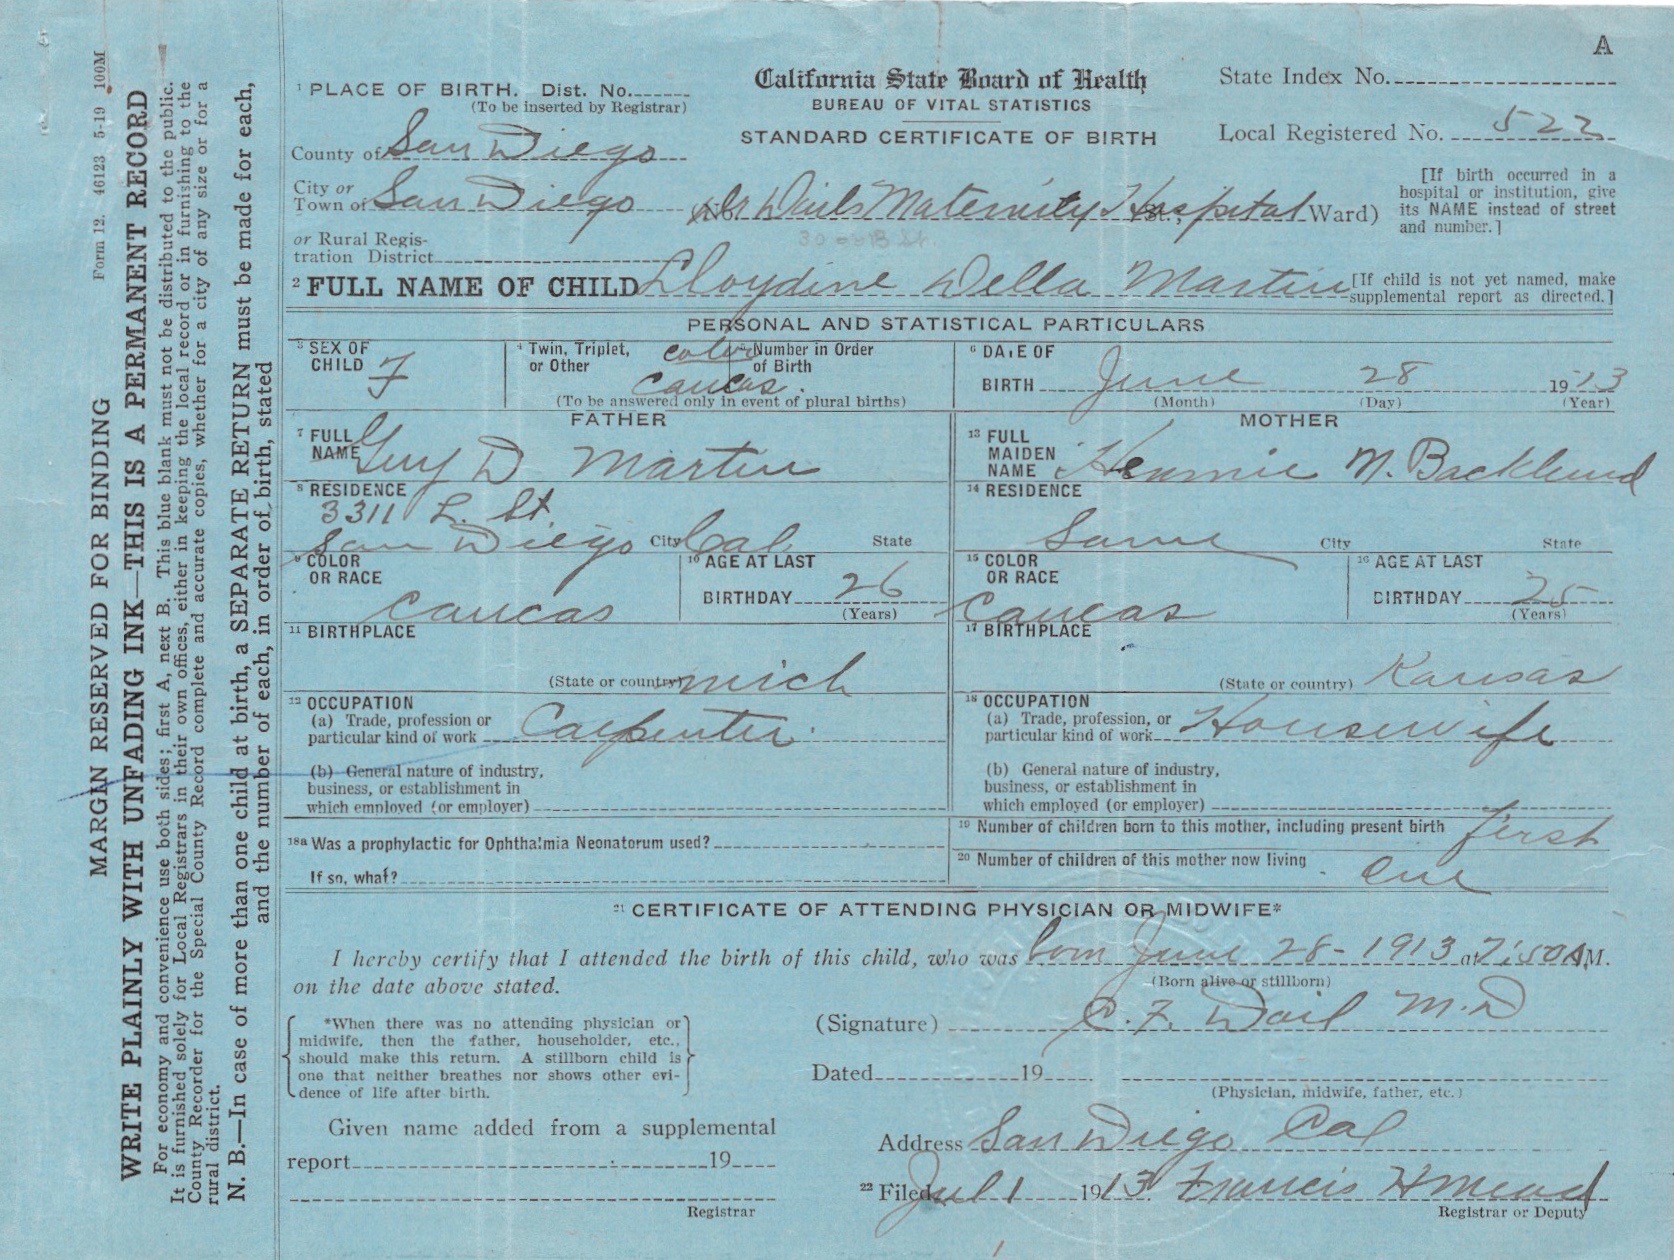 A
California State Board of Health
BUREAU OF VITAL STATISTICS
STANDARD CERTIFICATE OF BIRTH
State Index No.
Local Registered No. 522
1 PLACE OF BIRTH. Dist. No.
(To be inserted by Registrar)
County of San Diego
City or
Town of San Diego No. Dr Dails Maternity Hospital St.; Ward)
30 B St.
[If birth occurred in a
hospital or institution, give
its NAME instead of street
and number.]
or Rural Regis-
tration District
2 FULL NAME OF CHILD Lloydine Della Martin
[If child is not yet named, make
supplemental report as directed.]
PERSONAL AND STATISTICAL PARTICULARS
3 SEX OF
CHILD F
4 Twin, Triplet,
or Other
color
caucas.
5 Number in Order
of Birth
(To be answered only in event of plural births)
6 DATE OF
BIRTH June 28 1913
(Month) (Day) (Year)
FATHER
7 FULL
NAME Guy D Martin
8 RESIDENCE
3311 L. St.
San Diego City Cal State
9 COLOR
OR RACE
caucas
10 AGE AT LAST
BIRTHDAY 26
(Years)
11 BIRTHPLACE
(State or country) mich
12 OCCUPATION
(a) Trade, profession or
particular kind of work Carpenter
(b) General nature of industry,
business, or establishment in
which employed (or employer)
18a Was a prophylactic for Ophthalmia Neonatorum used?
If so, what?
MOTHER
13 FULL
MAIDEN
NAME Hennie M. Backlund
14 RESIDENCE
Same City State
15 COLOR
OR RACE
Caucas
16 AGE AT LAST
BIRTHDAY 25
(Years)
17 BIRTHPLACE
(State or country) Kansas
18 OCCUPATION
(a) Trade, profession, or
particular kind of work Housewife
(b) General nature of industry,
business, or establishment in
which employed (or employer)
19 Number of children born to this mother, including present birth first
20 Number of children of this mother now living One
21 CERTIFICATE OF ATTENDING PHYSICIAN OR MIDWIFE*
I hereby certify that I attended the birth of this child, who was born June 28 - 1913 at 7:50 A.M.
(Born alive or stillborn)
on the date above stated.
*When there was no attending physician or
midwife, then the father, householder, etc.,
should make this return. A stillborn child is
one that neither breathes nor shows other evi-
dence of life after birth.
(Signature) C. F. Dail M.D
Dated 19
(Physician, midwife, father, etc.)
Given name added from a supplemental
report 19
Registrar
Address San Diego Cal
22 Filed Jul 1 1913. Francis H Mead
Registrar or Deputy
Form 12. 46123 5-19 100M
MARGIN RESERVED FOR BINDING
WRITE PLAINLY WITH UNFADING INK—THIS IS A PERMANENT RECORD
For economy and convenience use both sides; first A, next B. This blue blank must not be distributed to the public.
It is furnished solely for Local Registrars in their own offices, either in keeping the local record or in furnishing to the
County Recorder for the Special County Record complete and accurate copies, whether for a city of any size or for a
rural district.
N. B.—In case of more than one child at birth, a SEPARATE RETURN must be made for each,
and the number of each, in order of birth, stated